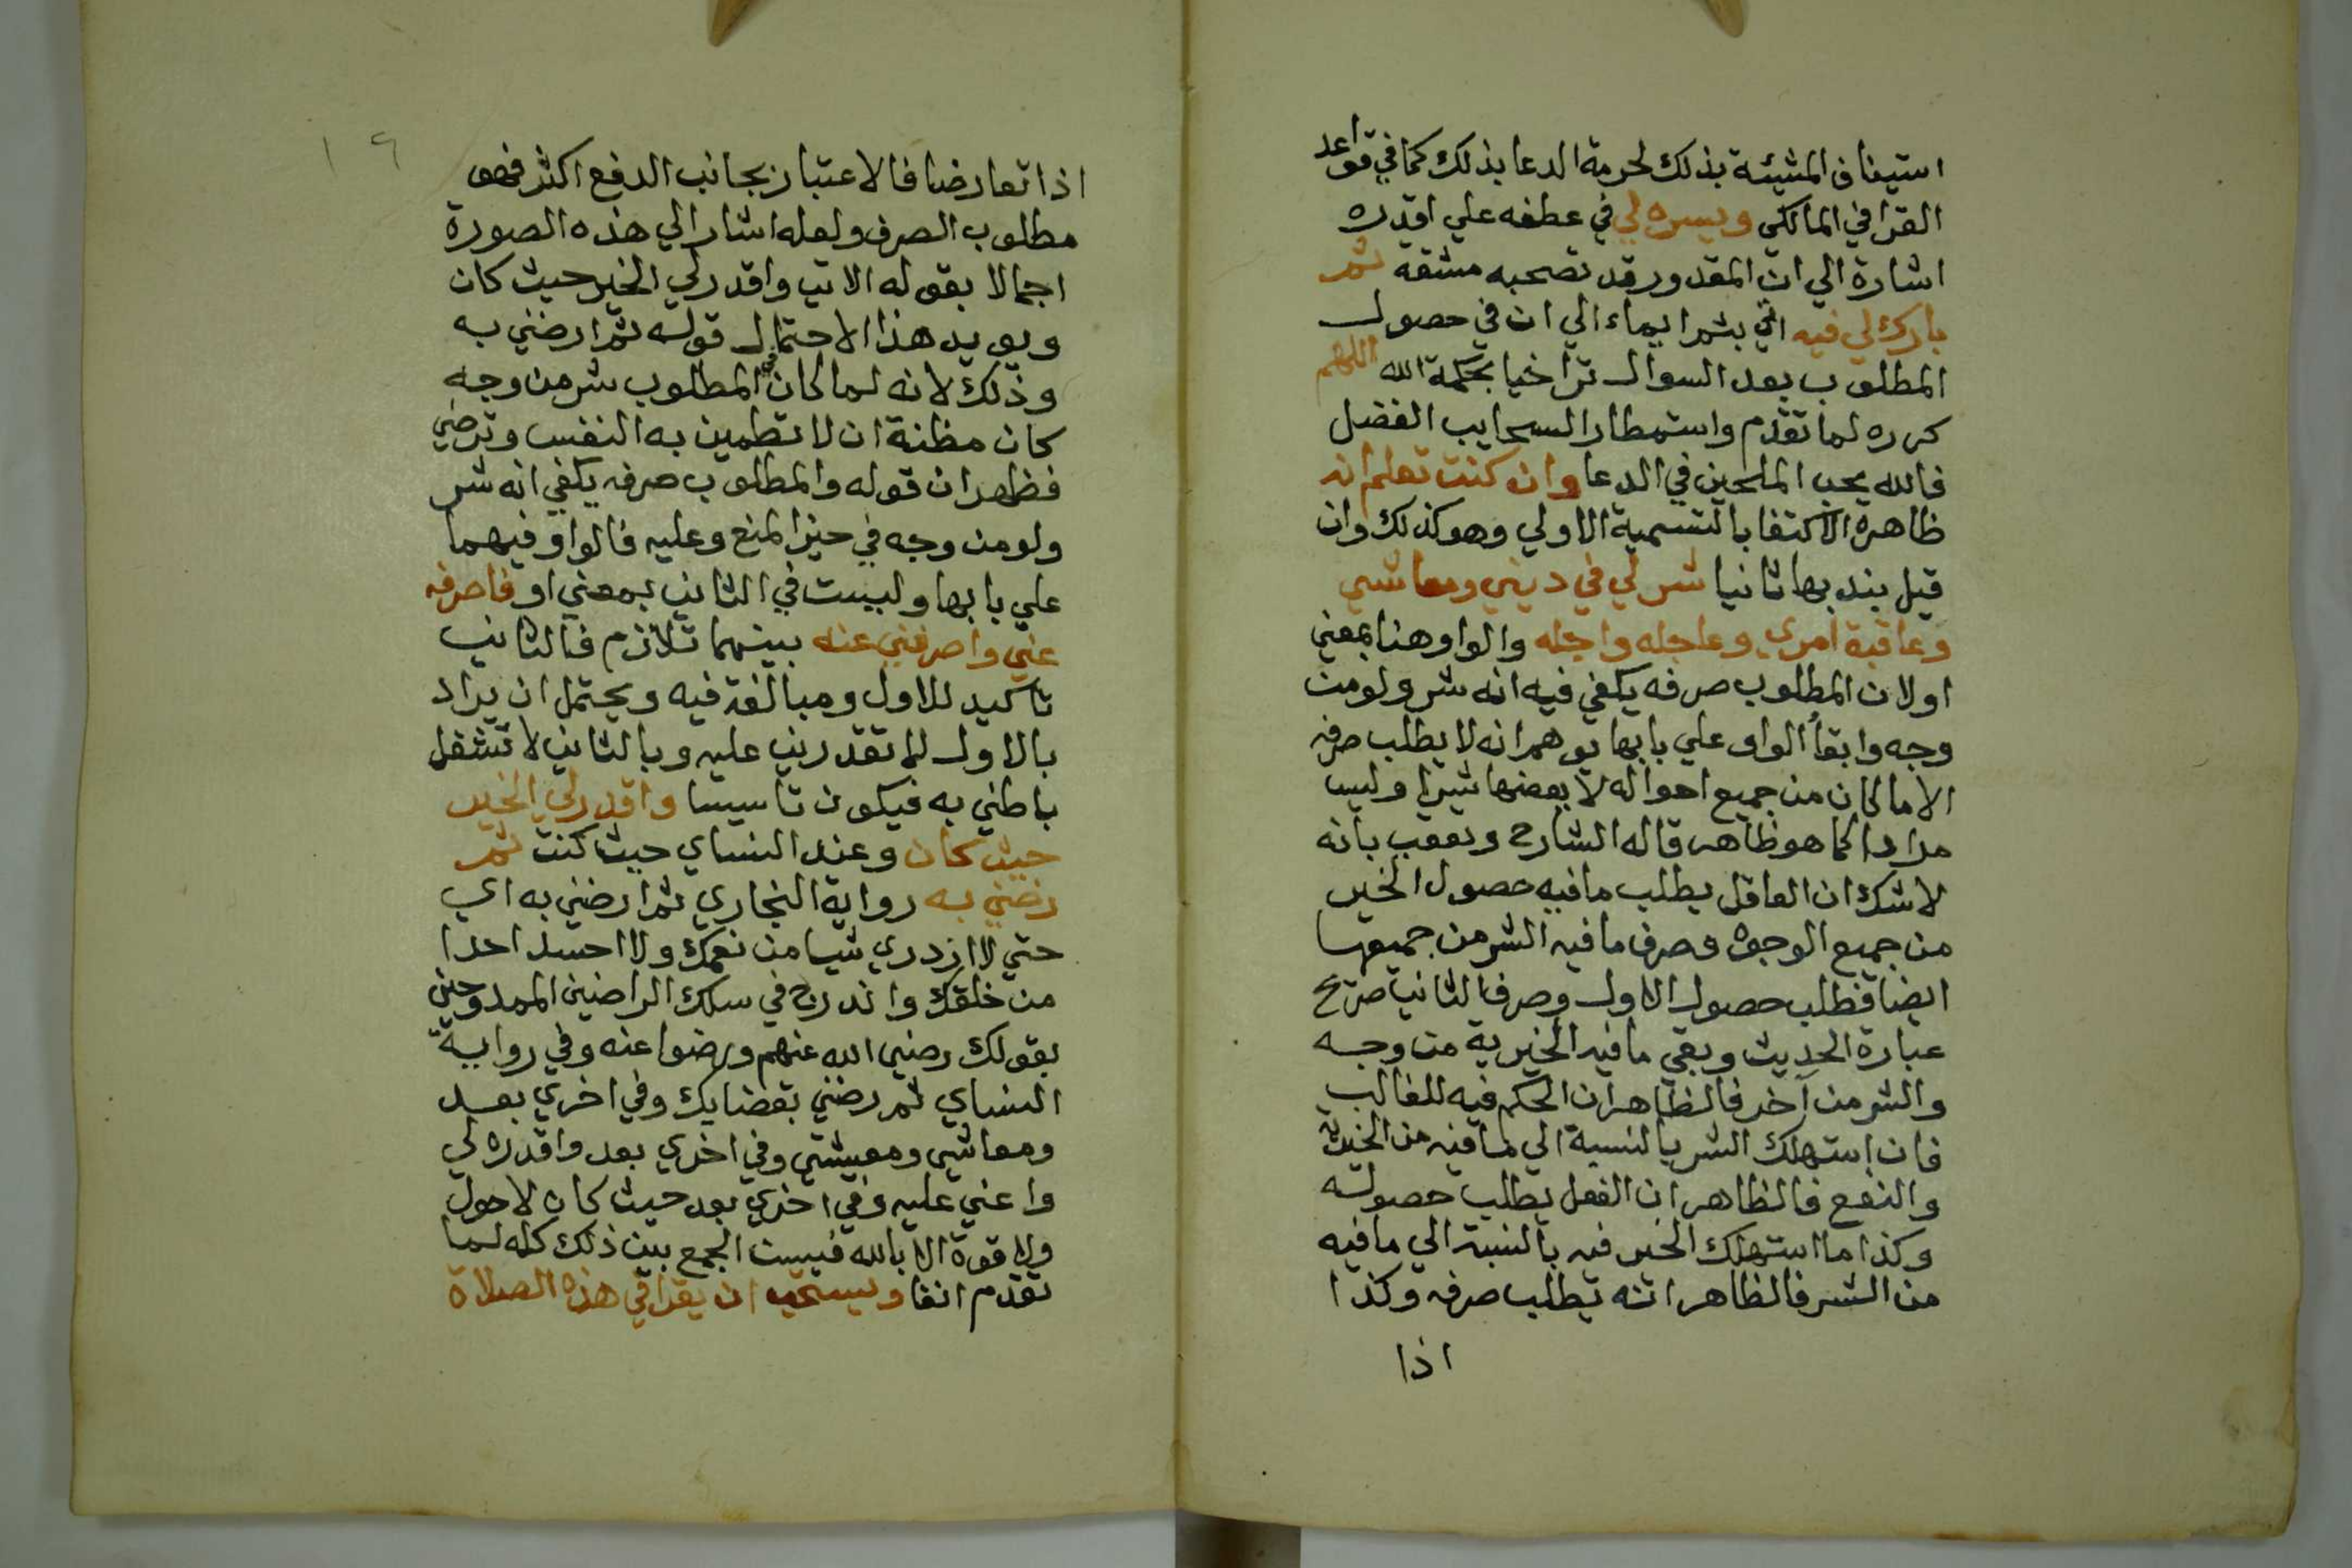 استيناف المشيئة بذلك لحرمة الدعا بذلك كما في قواعد
القرافي المالكي ويسره لي في عطفه علي اقدره
اشارة الي ان المقدور قد تصحبه مشقه ثم
بارك لي فيه اتي بثم ايماء الي ان في حصول
المطلوب بعد السوال تراخيا بحكمة الله اللهم
كرره لما تقدم واستمطار السحايب الفضل
فالله يحب الملحين في الدعا وان كنت تعلم انه
ظاهره الاكتفا بالتسمية الاولي وهو كذلك وان
قيل يندب بها ثانيا شر لي في ديني ومعاشي
وعاقبة امري وعاجله واجله والواو هنا بمعني
او لان المطلوب صرفه يكفي فيه انه شر ولو من
وجه وابقأ الواو علي بابها يوهم انه لا يطلب صرفه
الا ما كان من جميع احواله لا بعضها شرا وليس
مرادا كما هو ظاهر قاله الشارح وتعقب بانه
لا شك ان العاقل يطلب ما فيه حصول الخير
من جميع الوجوه وصرف ما فيه الشر من جميعها
ايضا فطلب حصول الاول وصرف الثاني صريح
عبارة الحديث وبقي ما فيه الخيرية من وجه
والشر من آخر فالظاهر ان الحكم فيه للغالب
فان استهلك الشر بالنسبة الي لما فيه من الخيرية
والنفع فالظاهر ان الفعل يطلب حصوله
وكذا ما استهلك الخير فيه بالنسبة الي ما فيه
من الشر فالظاهر انه يطلب صرفه وكذا
اذا
١٦
اذا تعارضا فالاعتبار بجانب الدفع اكثر فهو
مطلوب الصرف ولعله اشار الي هذه الصورة
اجمالا بقوله الاتي واقدر لي الخير حيث كان
ويويد هذا الاحتمال قوله ثم ارضني به
وذلك لانه لما كان في المطلوب شر من وجه
كان مظنة ان لا تطمين به النفس وترضي
فظهر ان قوله والمطلوب صرفه يكفي انه شر
ولو من وجه في حيز المنع وعليه فالواو فيهما
علي بابها وليست في الثاني بمعني او فاصرفه
عني واصرفني عنه بينهما تلازم فالثاني
تاكيد للاول ومبالغة فيه ويحتمل ان يراد
بالاول لا تقدرني عليه وبالثاني لا تشغل
باطني به فيكون تاسيسا واقدر لي الخير
حيث كان وعند النساي حيث كنت ثم
رضني به رواية البخاري ثم ارضني به اي
حتي لا ازدري شيا من نعمك ولا احسد احدا
من خلقك واندرج في سلك الراضين الممدوحين
بقولك رضي الله عنهم ورضوا عنه وفي رواية
النساي ثم رضني بقضايك وفي اخري بعد
ومعاشي ومعيشتي وفي اخري بعد واقدره لي
واعني عليه وفي اخري بعد حيث كان لا حول
ولا قوة الا بالله فيسن الجمع بين ذلك كله لما
تقدم انفا ويستحب ان يقرا في هذه الصلاة